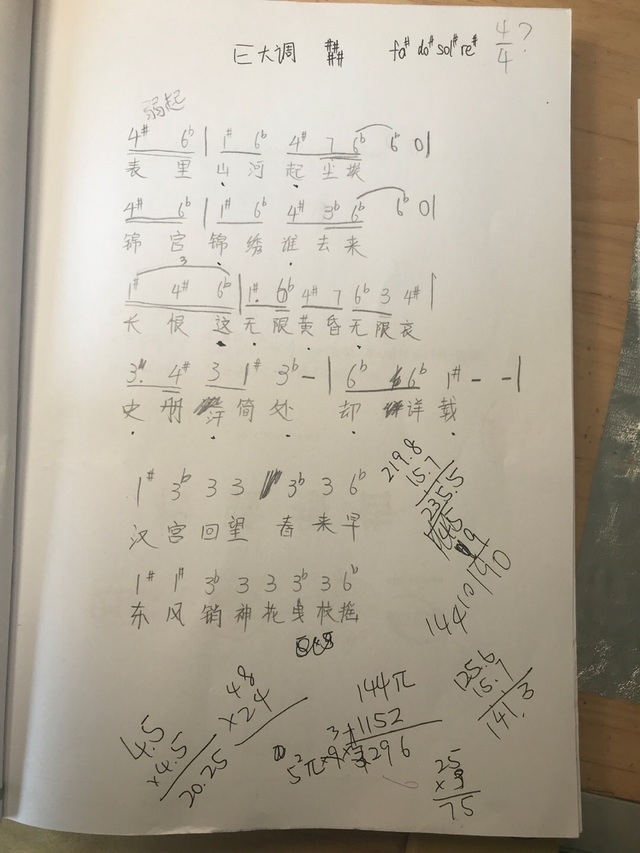 E大调 #### fa# do# sol# re# 4/4?
弱起
4# 6b | 1# 6b 4# 7 6b 6b 0|
表里山河起尘埃
4# 6b | 1# 6b 4# 3b 6b 6b 0|
锦宫锦绣谁去来
3
1# 4# 6b | 1#. 6b 4# 7 6b 3 4# |
长恨这无限黄昏无限哀
3. 4# 3 1# 3b – | 6b 6b 1# - - |
史册汗简处却详载
1# 3b 3 3 3b 3 6b
汉宫回望春来早
1# 1# 3b 3 3 3b 3 6b
东风销神花曳扶摇
219.8
15.7
235.5
144
190
125.6
15.7
141.3
4.5
×4.5
20.25
48
×24
144π
+1152
1296
5²π×9×3
25
×3
75